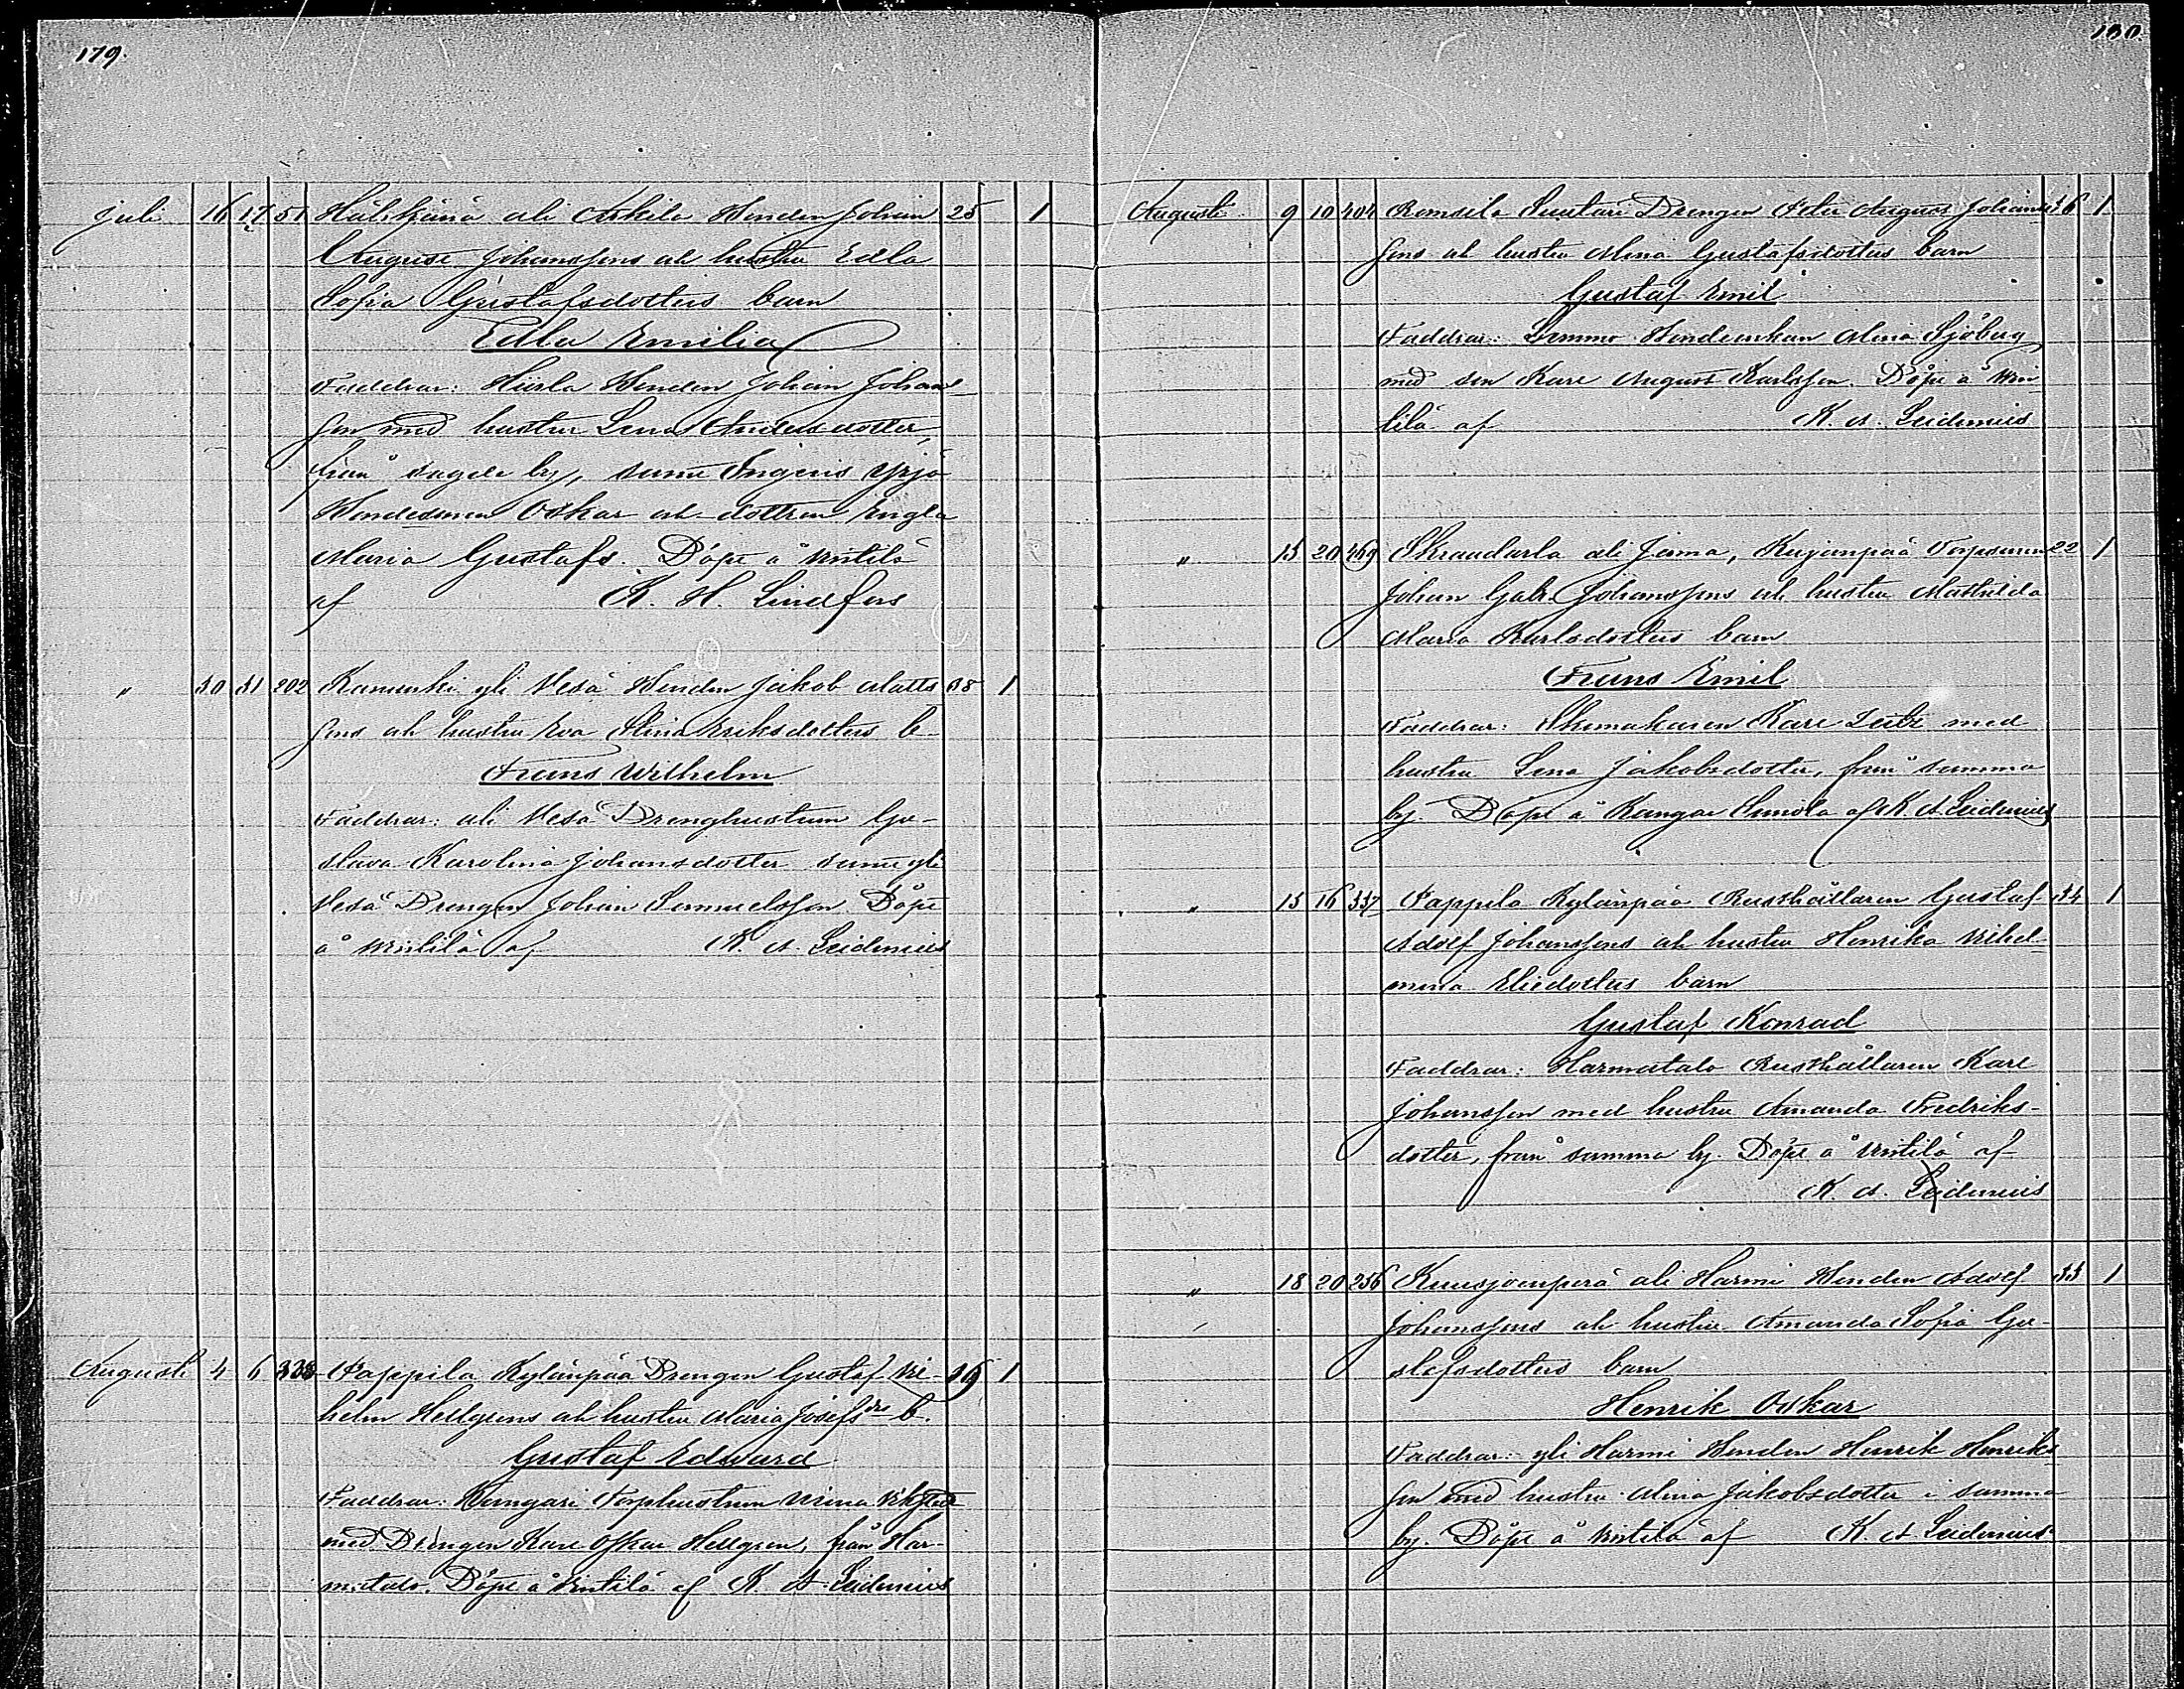 179.
Juli 16 17 51 Hälskänä ali Askila Bonden Johan 25 1
August Johanssons och hustru Edla
Sofia Gustafsdotters barn
Edla Emilia
Faddrar: Bonden Johan Johans
son med hustru Lena Andersdotter,
från by, samt Yrjö
Bondesonen Oskar och dottren Engla
Maria Gustafs. Döpt å Wintilä
af K. H. Lindfors
" 30 31 202 Kamunki yli Vesa Bonden Jakob Matts 38 1
sons och hustru Eva Stina Eriksdotters b.
Frans Wilhelm
Faddrar: ali Vesa Drenghustrun Gu-
stava Karolina Johansdotter samt yli
Vesa Drengen Johan Samuelsson. Döpt
å Wintilä af K. A. Leidenius
Augusti 4 6 338 Pappila Kylänpää Drengen Gustaf Wil- 26 1
helm Hellgrens och hustru Maria Josefs drs b.
Gustaf Edward
Faddrar: Torphustrun
med Drengen Karl Oskar Hellgren, från Har-
matalo. Döpt å Wintilä af K. A. Leidenius
180.
Augusti 9 10 404 Suutari Drengen Peter August Johans 36 1
sons och hustru Mina Gustafsdotters barn
Gustaf Emil
Faddrar: Bondeenkan Mina Sjöberg
med son Karl August Karlsson. Döpt å Win
tilä af K. A. Leidenius
" 15 20 469 Skraadarla ali Jerma, Kujanpää Torparen 22 1
Johan Gabr. Johanssons och hustru Mathilda
Maria Karlsdotters barn
Frans Emil
Faddrar: Skomakaren Karl med
hustru Lena Jakobsdotter, från samma
by. Döpt å Kangar af K. A. Leidenius
" 15 16 337 Pappila Kylänpää Rusthållaren Gustaf 34 1
Adolf Johanssons och hustru Henrika Wilhel-
mina Eliedotters barn
Gustaf Konrad
Faddrar: Harmatalo Rusthållaren Karl
Johansson med hustru Amanda Fredriks-
dotter, från samma by. Döpt å Wintilä af
K. A. Leidenius
" 18 20 256 Kuusjoenperä ali Harmi Bonden Adolf 33 1
Johanssons och hustru Amanda Sofia Gu-
stafsdotters barn
Henrik Oskar
Faddrar: yli Harmi Bonden Henrik Henriks
son med hustru Mina Jakobsdotter i samma
by. Döpt å Wintilä af K. A Leidenius